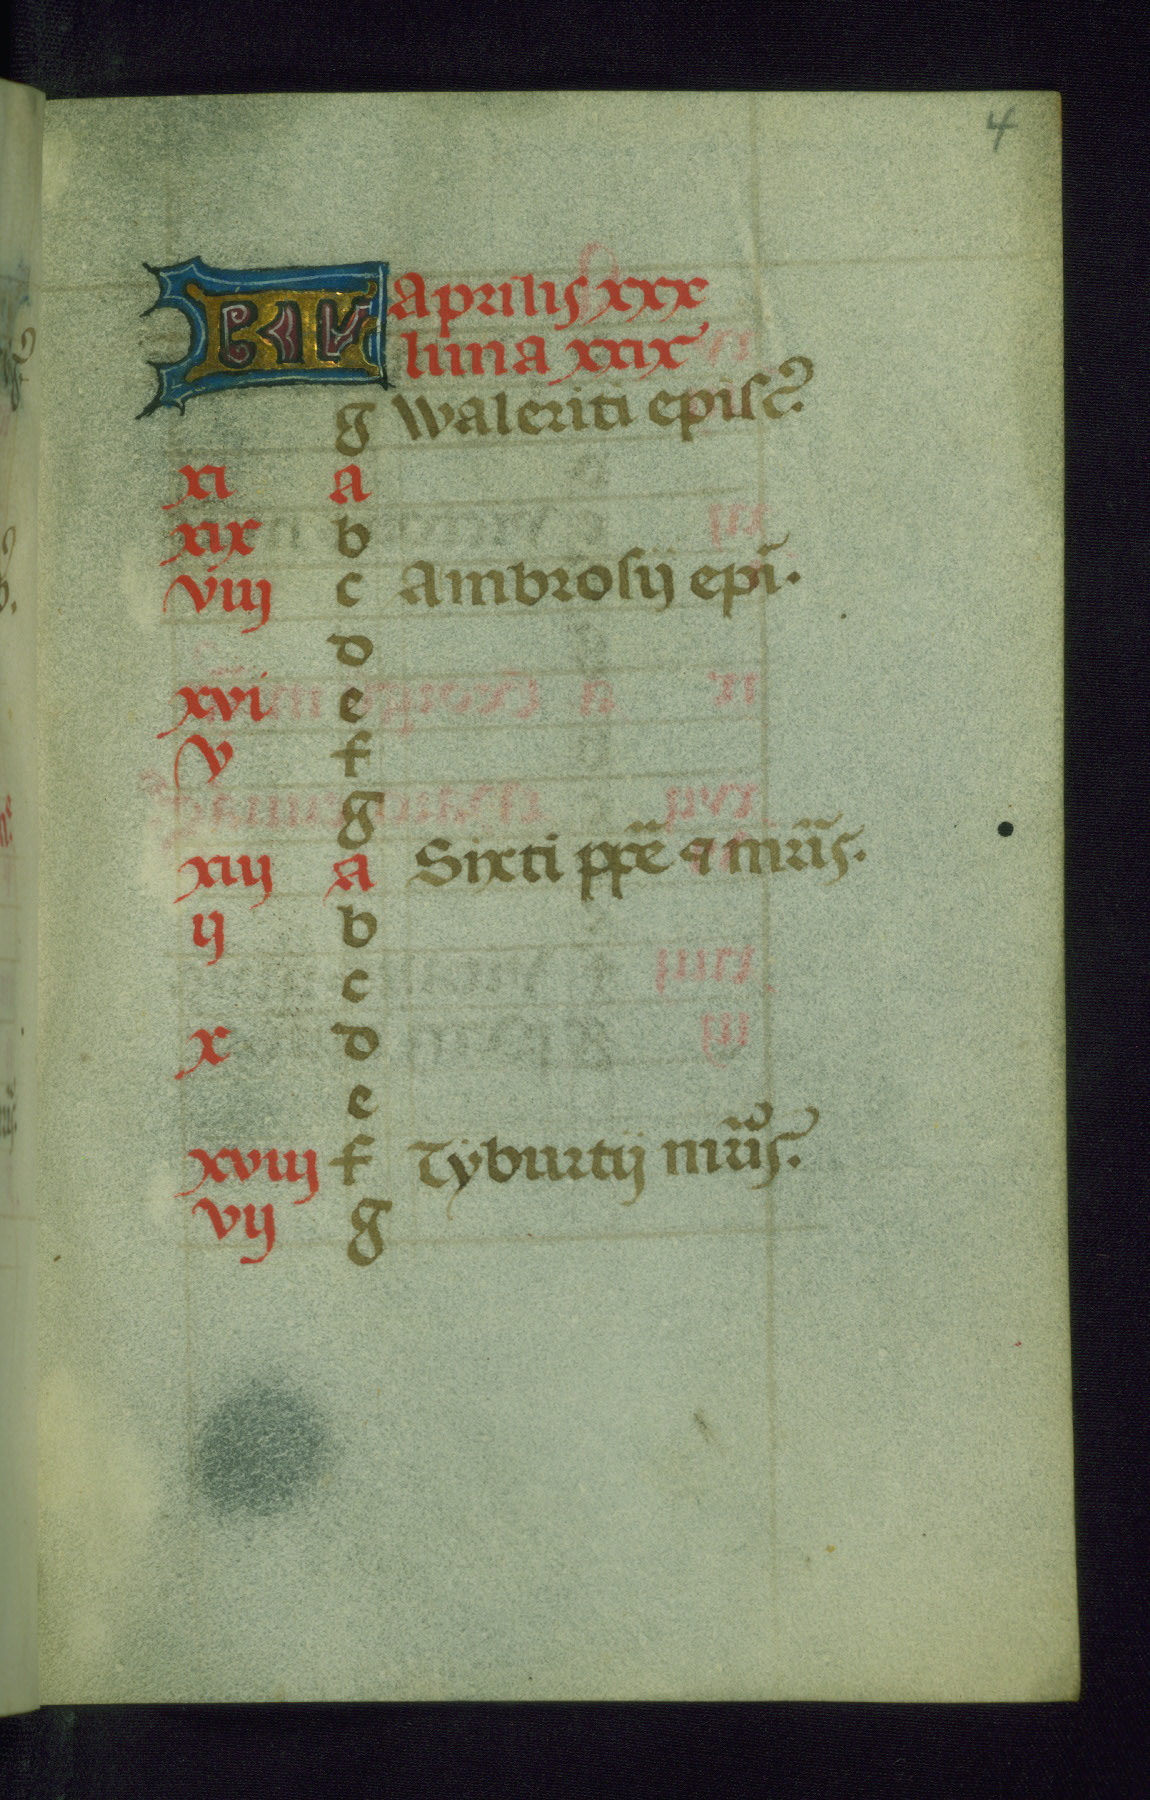 4
Aprilis xxx
luna xxix
g Waleriti episc.
xi a
xix b
viij c Ambrosij epi.
d
xvi e
v f
g
xiij a Sixti ppe ⁊ mris.
ij b
c
x d
e
xviij f Tyburtij mris.
vij g